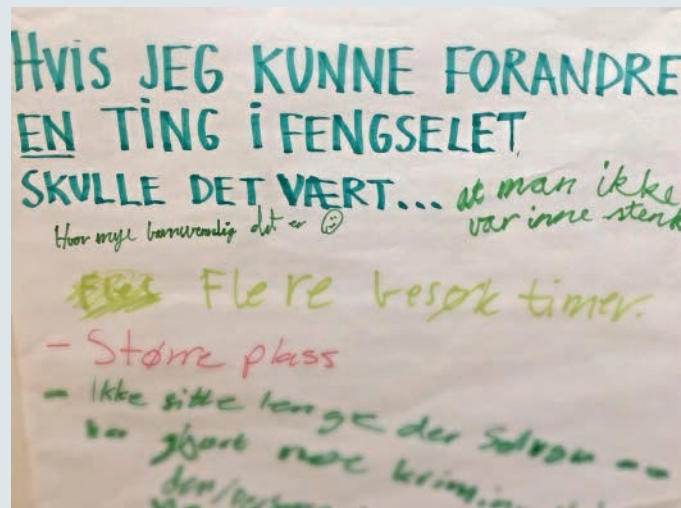 HVIS JEG KUNNE FORANDRE
EN TING i FENGSELET
SKULLE DET VÆRT...
at man ikke
var inne stenk
Hvor mye barnvennlig det er ☺
Flere besøk timer.
- Større plass
- Ikke sitte lenge der
gjort noe